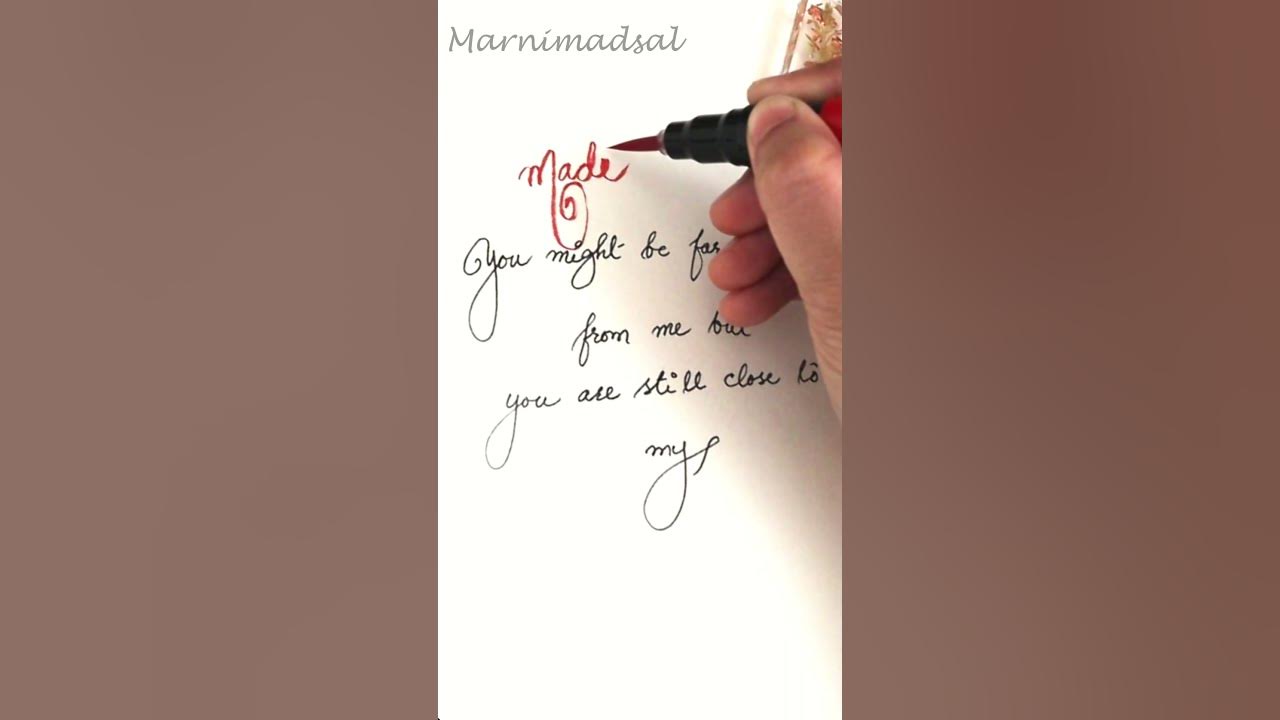 Marnimadsal
Made
You might be far
from me but
you are still close to
my